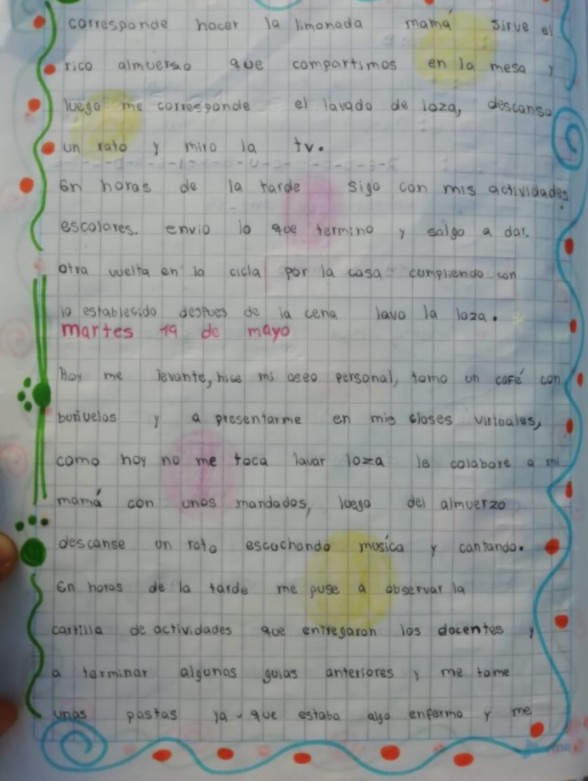 corresponde hacer la limonada mamá sirve el
rico almuerso que compartimos en la mesa y
luego me corresponde el lavado de loza, descanso
un rato y miro la tv.
En horas de la tarde sigo con mis actividades
escolares. envio lo que termino y salgo a dar.
otra vuelta en la cicla por la casa cumpliendo con
lo establecido despues de la cena lavo la loza.
martes 19 de mayo
hoy me levante, hice mi aseo personal, tomo un café con
buñuelos y a presentarme en mis clases virtuales,
como hoy no me toca lavar loza le colabore a mi
mamá con unos mandados, luego del almuerzo
descanse un rato escuchando musica y cantando.
En horas de la tarde me puse a observar la
cartilla de actividades que entregaron los docentes y
a terminar algunas guias anteriores y me tome
unas pastas ya-que estaba algo enfermo y me